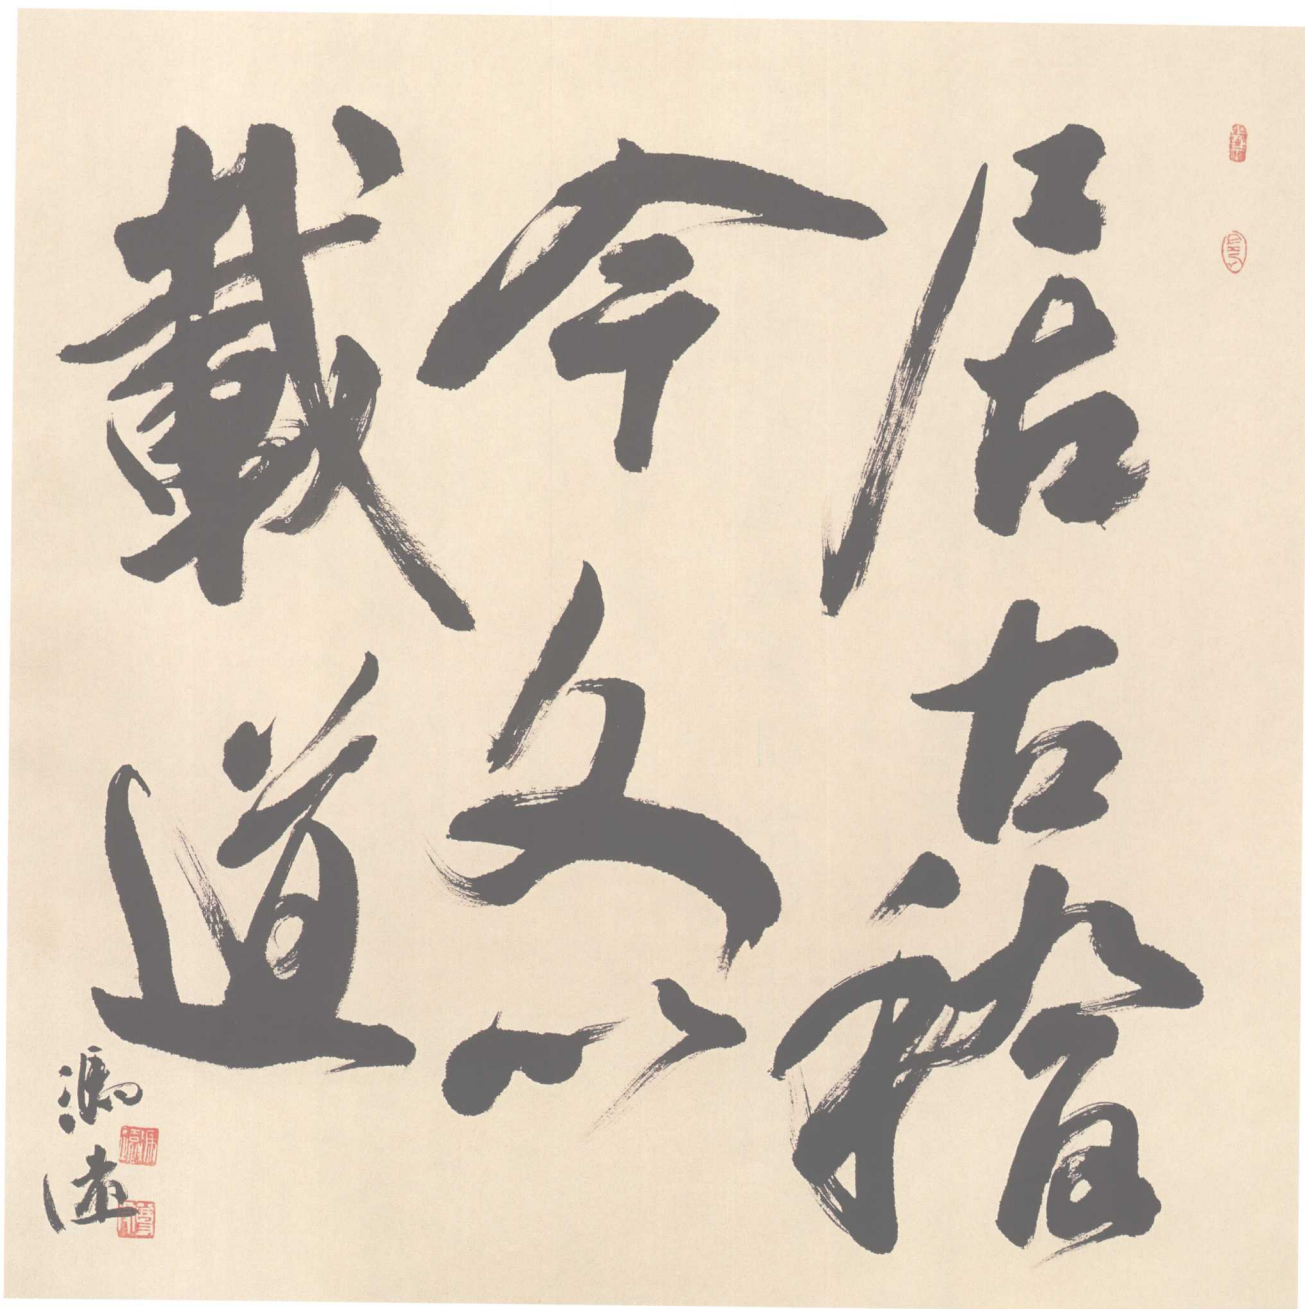 居古稽
今文以
載道
馮遠